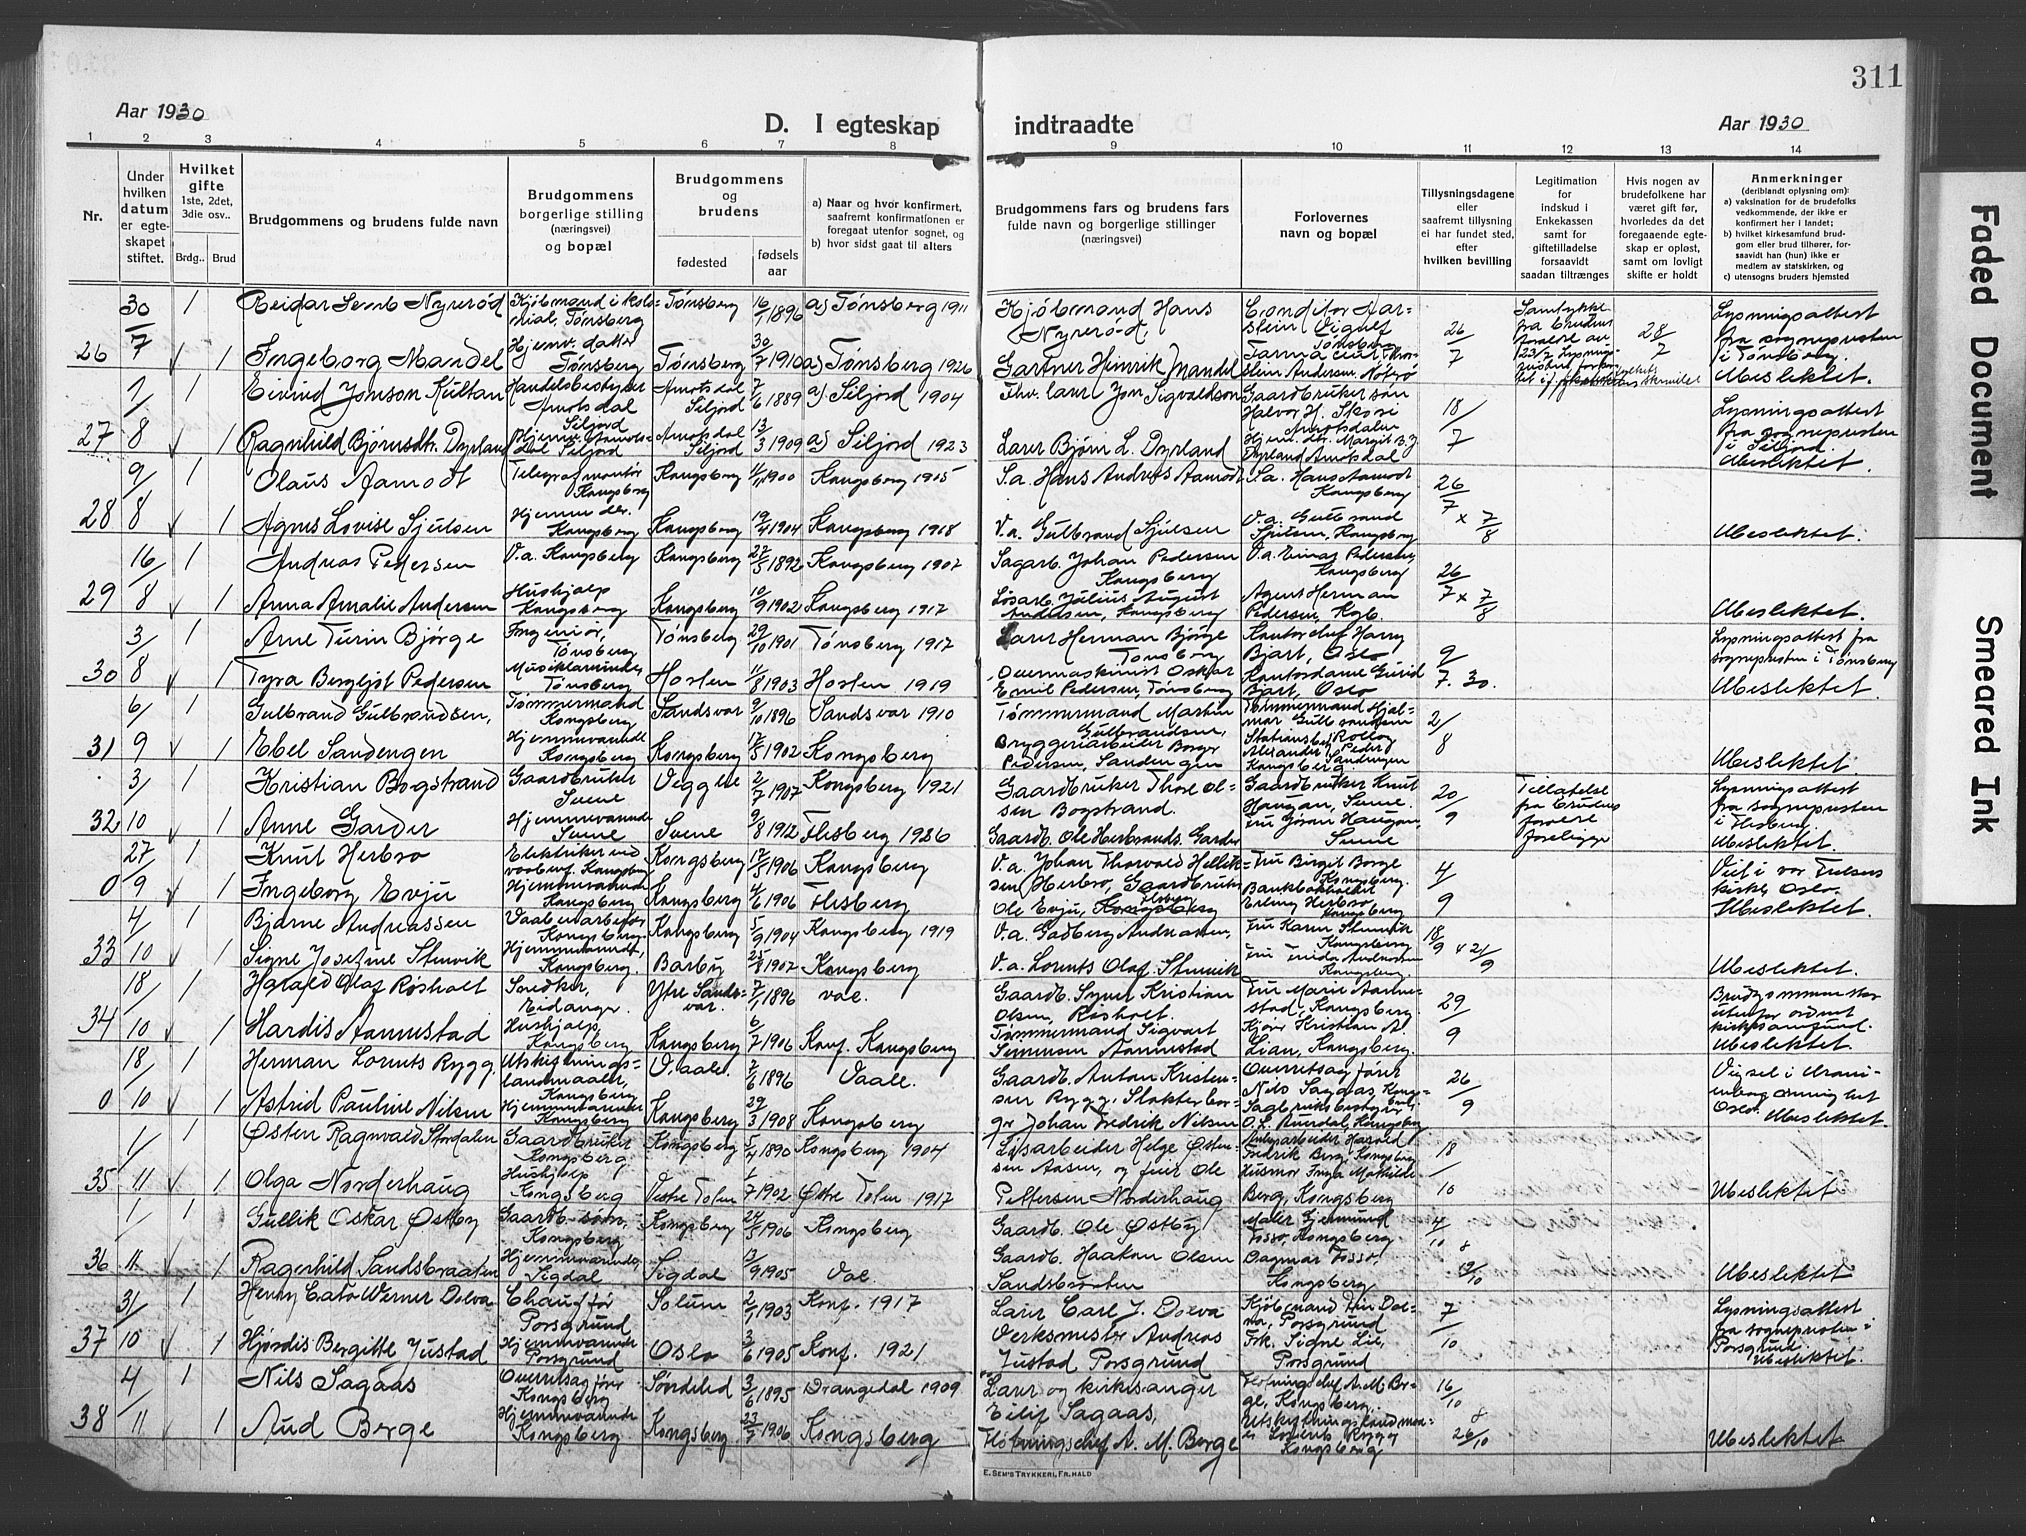 311
Aar 1930
D. I egteskap indtraadte
Aar 1930
1 2 3 4 5 6 7 8 9 10 11 12 13 14
Nr.
Under hvilken datum er egteskapet stiftet.
Hvilket gifte
1ste, 2det, 3die osv..
Brdg.. Brud
Brudgommens og brudens fulde navn
Brudgommens borgerlige stilling (næringsvei) og bopæl
Brudgommens og brudens
fødested
fødselsaar
a) Naar og hvor konfirmert, saafremt konfirmationen er foregaat utenfor sognet, og
b) hvor sidst gaat til alters
Brudgommens fars og brudens fars fulde navn og borgerlige stillinger (næringsvei)
Forlovernes navn og bopæl
Tillysningsdagene eller saafremt tillysning ei har fundet sted, efter hvilken bevilling
Legitimation for indskud i Enkekassen samt for giftetilladelse forsaavidt saadan tiltrænges
Hvis nogen av brudefolkene har været gift før, hvorledes da det foregaaende egteskap er opløst, samt om lovligt skifte er holdt
Anmerkninger
(deriblandt oplysning om):
a) vaksination for de brudefolks vedkommende, der ikke er konfirmert her i landet;
b) hvilket kirkesamfund brudgom eller brud tilhører, forsaavidt han (hun) ikke er medlem av statskirken, og
c) utensogns bruders hjemsted
30/7 1 Reidar Semb Nyrerød Kjøbmand i kolonial, Tønsberg Tønsberg 16/1 1896 a) Tønsberg 1911 Kjøbmand Hans Nyrerød,
26 1 Ingeborg Mandel Hjemv. datter Tønsberg Tønsberg 30/7 1910 a) Tønsberg 1926 Gartner Henrik Mandel 26/7 28/7 Lysningsattest fra sognepresten i Tønsberg. Ubeslektet.
1/8 1 Eivind Jonson Kultan Handelsbestyrer Amotsdal Siljord Amotsdal Siljord 7/6 1889 a) Siljord 1904 Jon Sigvaldson Gaardbrukersøn Halvor H.
27 1 Ragnhild Bjørnsdtr. Dyrland Siljord Amotsdal Siljord 13/3 1909 a) Siljord 1923 Lærer Bjørn L. Dyrland 18/7 Lysningsattest fra sognepresten i Siljord. Ubeslektet.
9/8 1 Olaus Aamodt Telegrafmontør Kongsberg Kongsberg 1900 Kongsberg 1905 S.a. Hans Andreas Aamodt S.a. Hans Aamodt Kongsberg
28 1 Agnes Lovise Sjulsen Hjemme dtr. Kongsberg Kongsberg 19/4 1904 Kongsberg 1918 V.a. Gulbrand Sjulsen V.a. Gulbrand Sjulsen, Kongsberg 26/7 x 7/8 Ubeslektet.
16/8 1 Andreas Pedersen V.a. Kongsberg Kongsberg 27/5 1892 Kongsberg 1907 Sagarb. Johan Pedersen Kongsberg V.a. Einar Pedersen, Kongsberg
29 1 Anna Amalie Andersen Hushjælp Kongsberg Kongsberg 10/9 1902 Kongsberg 1917 Løsarb. Julius August Andersen, Kongsberg Agent Herman Pedersen, Kgb. 26/7 x 7/8 Ubeslektet.
3/8 1 Arne Turin Bjørge Ingeniør, Tønsberg Tønsberg 29/10 1901 Tønsberg 1917 Lærer Herman Bjørge Tønsberg Kontorchef Harry Bjart, Oslo
30 1 Tyra Bergljot Pedersen Musiklærerinde, Tønsberg Horten 11/8 1903 Horten 1919 Overmaskinist Oskar Emil Pedersen, Tønsberg Kontordame Bjart, Oslo 9/7. 30. Lysningsattest fra sognepresten i Tønsberg Ubeslektet.
6/9 1 Gulbrand Gulbrandsen, Tømmermand Kongsberg Sandsvær 9/10 1896 Sandsvær 1910 Tømmermand Martin Gulbrandsen, Tømmermand Hjalmar Gulbrandsen
31 1 Ebel Sandengen Hjemmeværende Kongsberg Kongsberg 17/5 1902 Kongsberg Bryggeriarbeider Borger Pedersen, Sandengen Kongsberg 2/8 Ubeslektet.
3/10 1 Kristian Bogstrand Gaardbruker Svene Veggli 2/7 1907 Kongsberg 1921 Gaardbruker Thore Olsen Bogstrand. Gaardbruker Knut Haugan, Svene.
32 1 Anne Garder Hjemmeværende Svene Svene 9/8 1912 Flesberg 1926 Gaardb. Ole Herbrands. Garder Fru Gøran Haugan, Svene 20/9 Tilladelse fra brudens forældre foreligger Lysningsattest fra sognepresten i Flesberg. Ubeslektet.
27/9 1 Knut Herbro Kongsberg Kongsberg 17/5 1906 Kongsberg V.a. Johan Thorvald Helliksen Herbro, Fru Birgit Borge Kongsberg.
0 1 Ingeborg Evju Hjemmeværende Kongsberg Kongsberg 4/6 1906 Flesberg Gaardbruker Ole Evju, Flesberg Erling Herbro Kongsberg 4/9 Viet i vor Frelsers kirke Oslo. Ubeslektet.
4/10 1 Bjarne Andreassen Vaabenarbeider, Kongsberg Kongsberg 5/9 1904 Kongsberg 1919 V.a. Andreassen, Fru Karen Stenvik Kongsberg
33 1 Signe Josefine Stenvik Hjemmeværende, Kongsberg. Barbu 25/8 1907 Kongsberg V.a. Lorents Olaf Stenvik Fru Frida Andreassen Kongsberg 18/9 + 21/9 Ubeslektet.
18/10 1 Harald Olaf Røsholt Snedker, Eidanger. Ytre Sandsvær. 7/1 1896 vae. Gaardb. Syver Kristian Olsen, Røsholt. Fru Marie Aannestad, Kongsberg.
34 1 Hardis Aannestad Hushjælp, Kongsberg Kongsberg 6/7 1906 Konf. Kongsberg Tømmermand Sigvart Simensen Aannestad Kjør. Kristian A. Lian, Kongsberg. 29/9 Brudgommen staar utenfor ordnet kirkesamfund. Ubeslektet.
18/10 1 Herman Lorents Rygg Utskiftningslandmaaler, Kongsberg Vaale. 7/6 1896 Vaale. Gaardb. Anton Kristensen Rygg. Overretssagfører Nils Sagaas Kongsberg,
0 1 Astrid Pauline Nilsen Hjemmeværende Kongsberg Kongsberg 29/3 1908 Kongsberg Slakterborger Johan Fredrik Nilsen Sagbruksbestyrer O.L. Aurdal, Kongsberg 26/9 Vigsel i Oslo. Ubeslektet.
1/11 1 Østen Ragnvald Stordalen Gaardbruker Kongsberg Kongsberg 5/4 1890 Kongsberg 1904 Løsarbeider Helge Østensen Aasen, Harald Fredrik Berg, Kongsberg
35 1 Olga Nørderhaug Hushjælp Kongsberg Vestre Toten 1/7 1902 Østre Toten 1917 og feier Ole Pettersen Nørderhaug Husmor Inga Mathilde Berg, Kongsberg 18/10 Ubeslektet
1/11 1 Gullik Oskar Østby Gaardb. søn, Kongsberg Kongsberg 24/5 1906 Kongsberg Gaardb. Ole Østby Maler Gjermund Fosso, Kongsberg.
36 1 Ragnhild Sandsbraaten Hjemmeværende, Sigdal Sigdal 13/9 1905 Vae. Gaardb. Haakon Olsen Sandsbraaten Dagmar Fosso, Kongsberg, 4/10 & 12/10 Ubeslektet
31/10 1 Henry Cato Werner Dolva Chauffør Porsgrund Solum 2/1 1903 Konf. 1917 Lærer Carl J. Dolva Kjøbmand Dolva, Porsgrund
37 1 Hjørdis Bergitte Justad Hjemmeværende Porsgrund Oslo 2/6 1905 Konf. 1921 Verksmester Andreas Justad Porsgrund Frk. Signe Lie, Porsgrund 7/10 Lysningsattest fra sognepresten i Porsgrund. Ubeslektet.
4/11 1 Nils Sagaas Overretssagfører Kongsberg Søndeled 3/6 1895 Drangedal 1909 Lærer og kirkesanger Eilif Sagaas, Fløtningschef A. M. Berge, Kongsberg,
38 1 Aud Berge Hjemmeværende Kongsberg Kongsberg 23/7 1906 Kongsberg Fløtningschef A. M. Berge Utskiftningslandmaaler Lorents Rygg Kongsberg 16/10 & 26/10 Ubeslektet
E. SEM'S TRYKKERI, FR.HALD
Faded Document
Smeared Ink